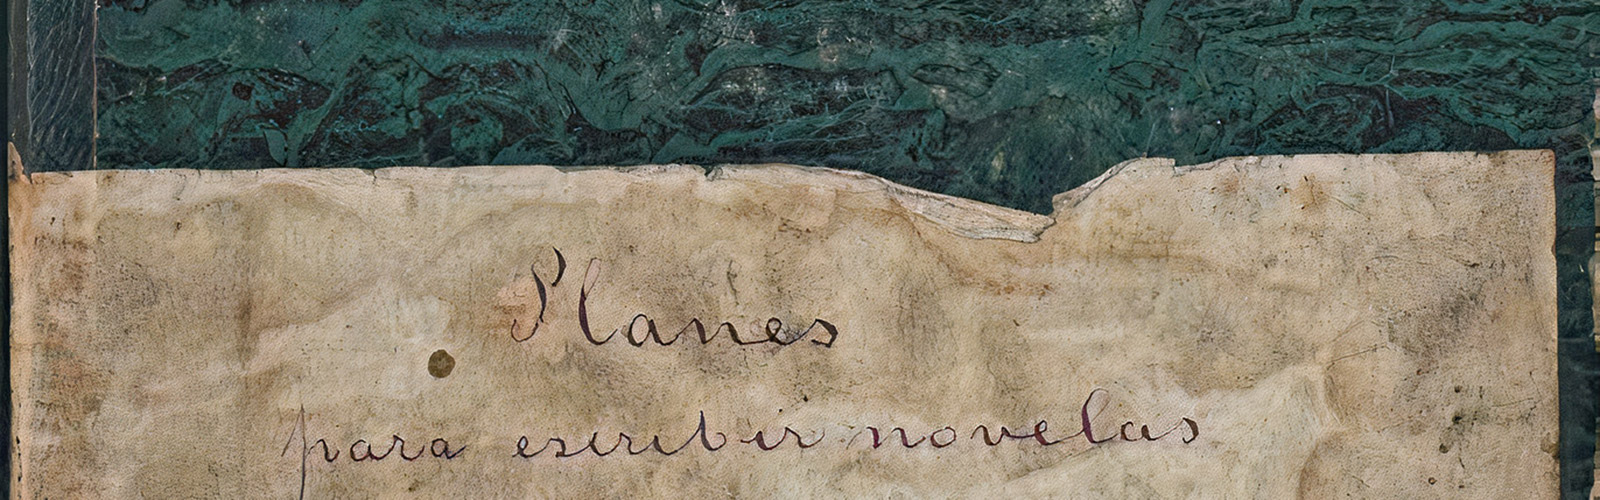 Planes
para escribir novelas